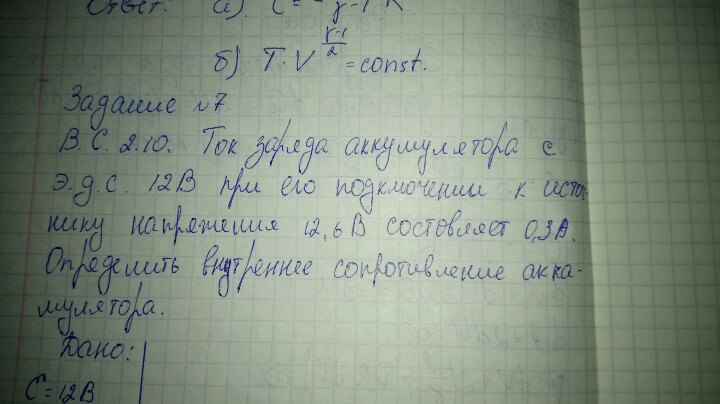 Ответ: а). C =
б). T·V^(γ-1)/2 = const.
Задание №7
В.С. 2.10. Ток заряда аккумулятора с
э.д.с. 12В при его подключении к источ
нику напряжения 12,6 В состовляет 0,3А.
Определить внутреннее сопротивление акка-
мулятора.
Дано:
= 12В